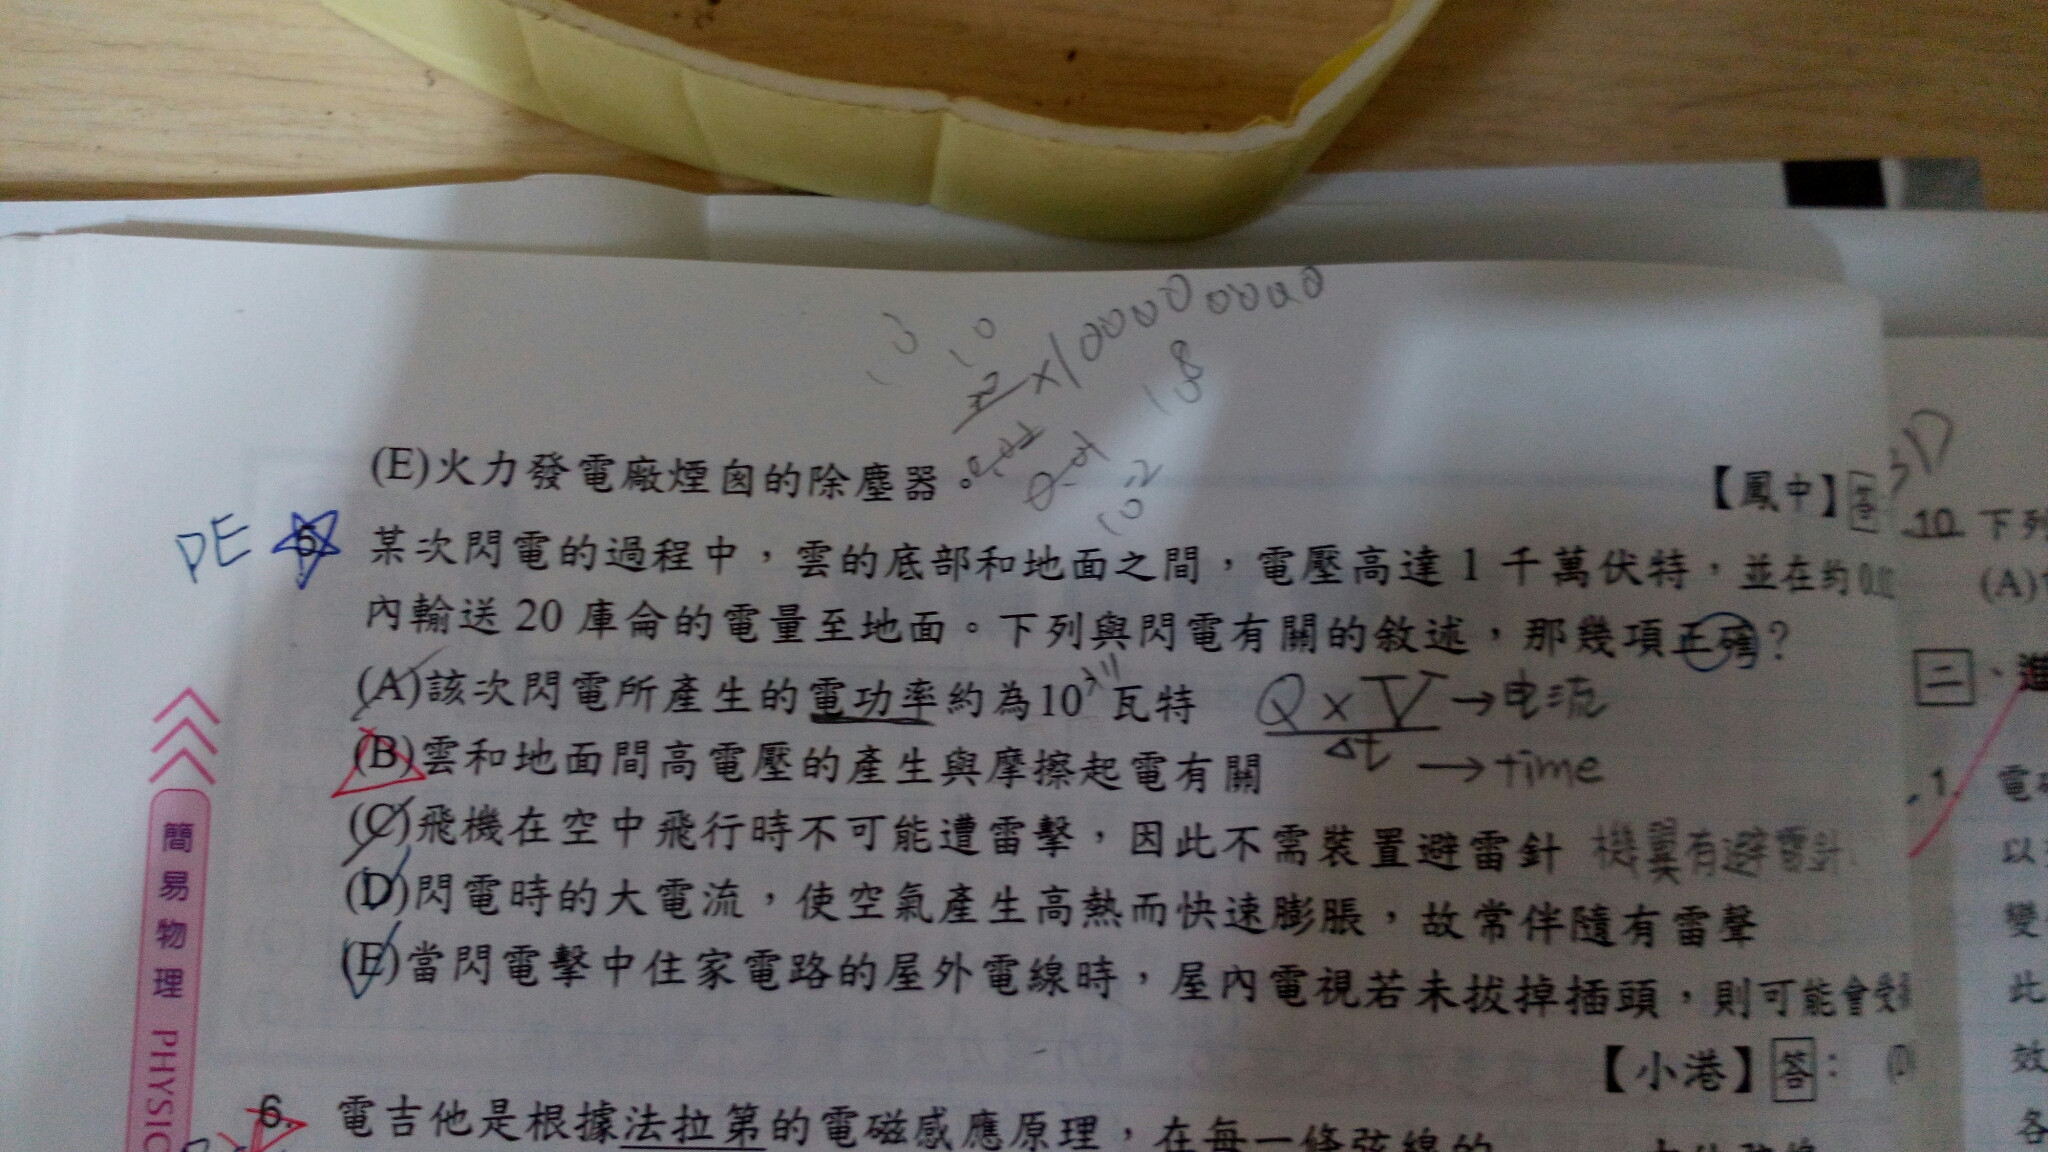 (E)火力發電廠煙囪的除塵器。
【鳳中】答
DE
5. 某次閃電的過程中，雲的底部和地面之間，電壓高達 1 千萬伏特，並在約
內輸送 20 庫侖的電量至地面。下列與閃電有關的敘述，那幾項正確？
(A)該次閃電所產生的電功率約為10 瓦特
Q×V → 电流
Δt → time
(B)雲和地面間高電壓的產生與摩擦起電有關
(C)飛機在空中飛行時不可能遭雷擊，因此不需裝置避雷針 機翼有避雷針
(D)閃電時的大電流，使空氣產生高熱而快速膨脹，故常伴隨有雷聲
(E)當閃電擊中住家電路的屋外電線時，屋內電視若未拔掉插頭，則可能會受
【小港】答：
6. 電吉他是根據法拉第的電磁感應原理，在每一條弦線的
簡易物理 PHYSIC
10 下列
(A)
二、進
1. 電
以
變
此
效
各